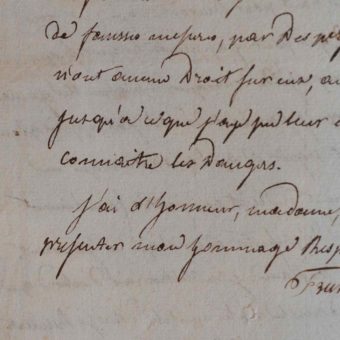 de fausse mesure, par des pe
n'ont aucun Droit sur eux, a
jusqu'à ce que j'aye pu leur
connaitre les Dangers.
j'ai d'honneur, madame,
presenter mon hommage Resp